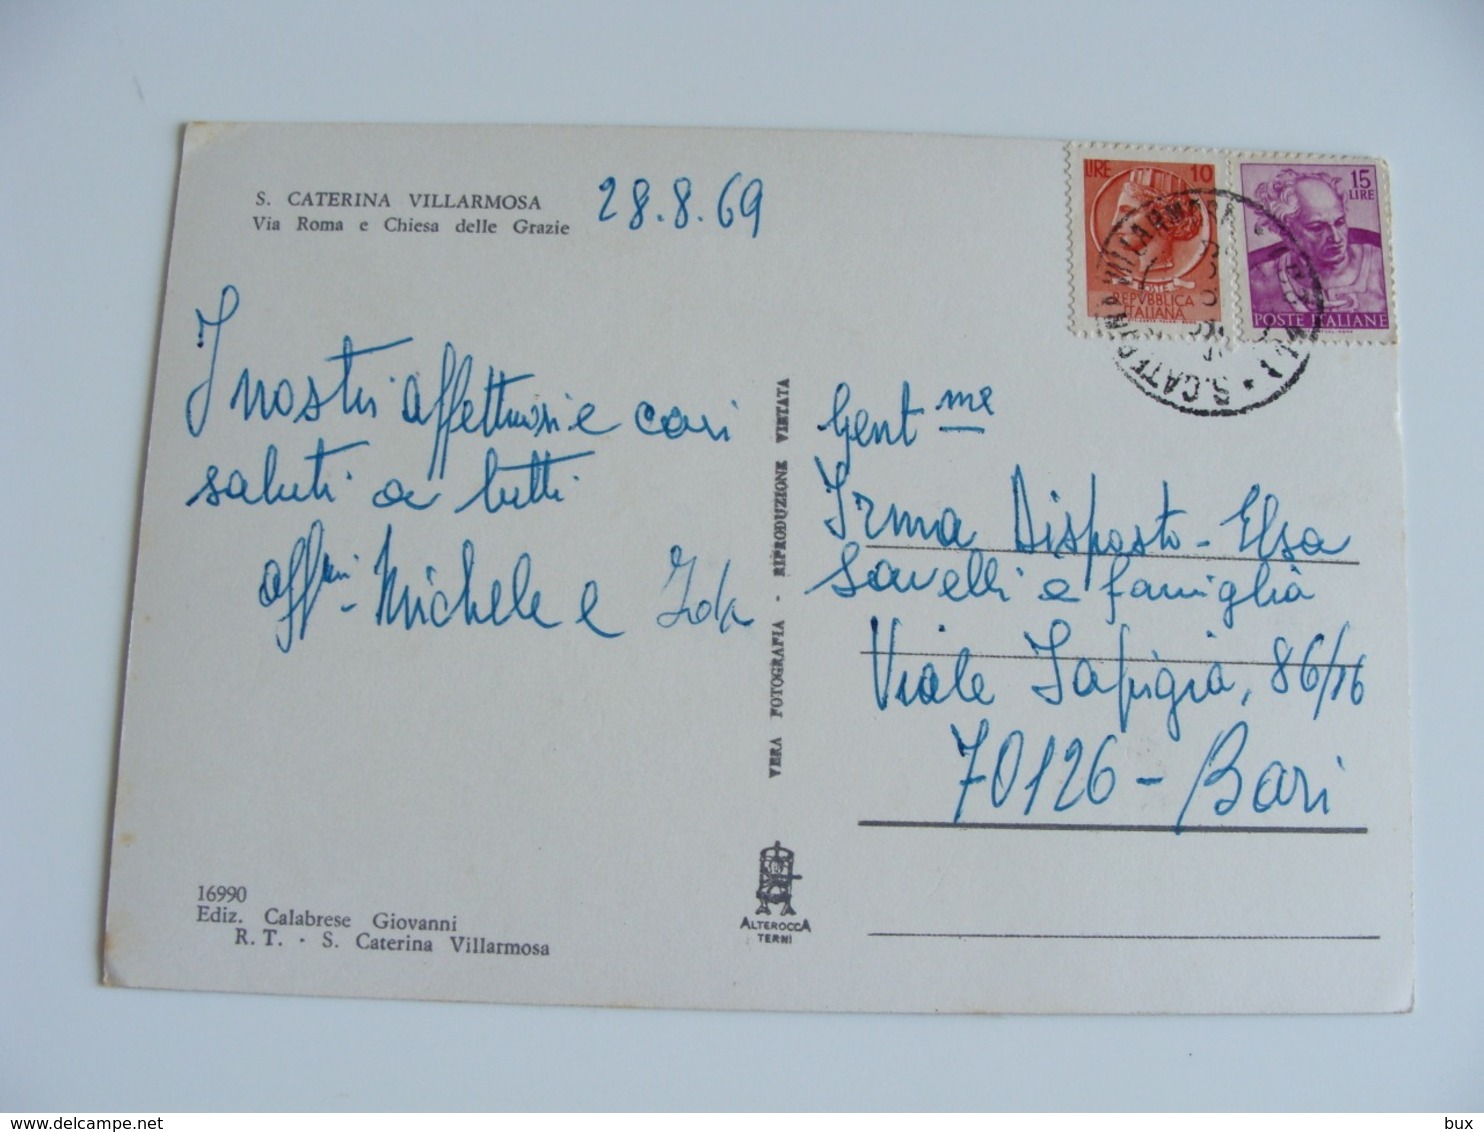 S. CATERINA VILLARMOSA
Via Roma e Chiesa delle Grazie
28.8.69
I nostri affettuosi e cari
saluti a tutti
aff.mi - Michele e Ida
16990
Ediz. Calabrese Giovanni
R. T. - S. Caterina Villarmosa
VERA FOTOGRAFIA - RIPRODUZIONE VIETATA
ALTEROCCA
TERNI
LIRE 10
REPVBBLICA
ITALIANA
15
LIRE
POSTE ITALIANE
S. CATERINA VILLARMOSA
Gent me
Irma Disposto - Elsa
Savelli e famiglia
Viale Japigia, 86/16
70126 - Bari
delcampe.net
bux